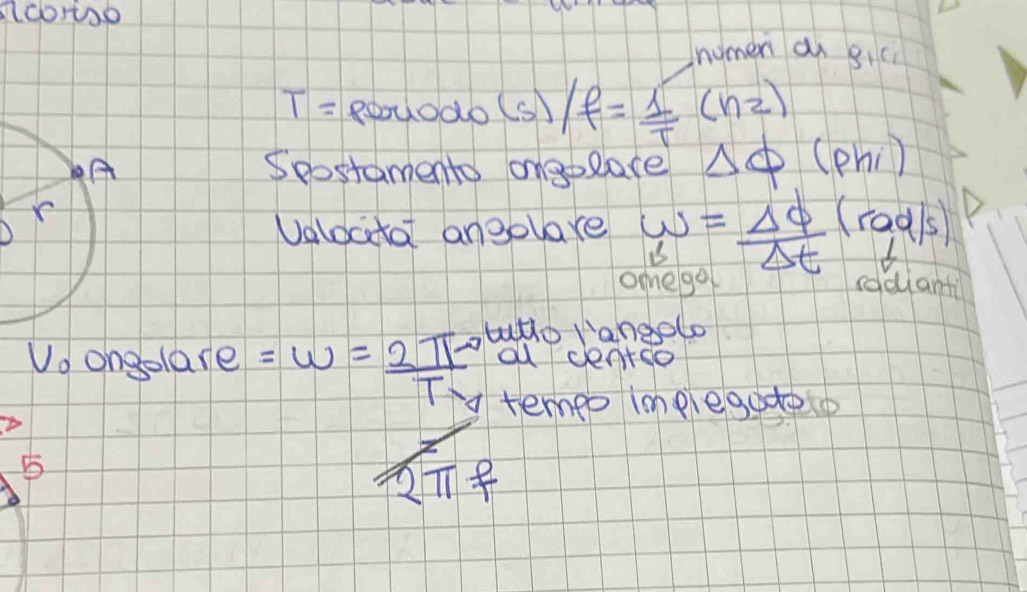 numeri di giri
T = periodo (s) / f = 1/T (hz)
A
Spostamento angolare Δϕ (phi)
r
Velocità angolare ω = Δϕ/Δt (rad/s)
omega radianti
V₀ angolare = ω = 2π/T → tutto l'angolo al centro
tempo impiegato
5
= 2πf